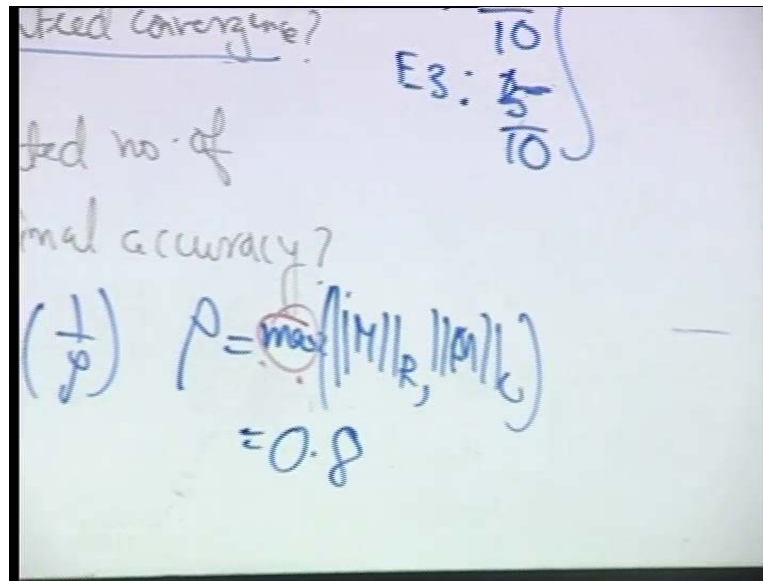 teed convergence?
10
E3: 5
10
ted no. of
imal accuracy?
(1/ρ) ρ = max(||M||R, ||M||C)
= 0.8